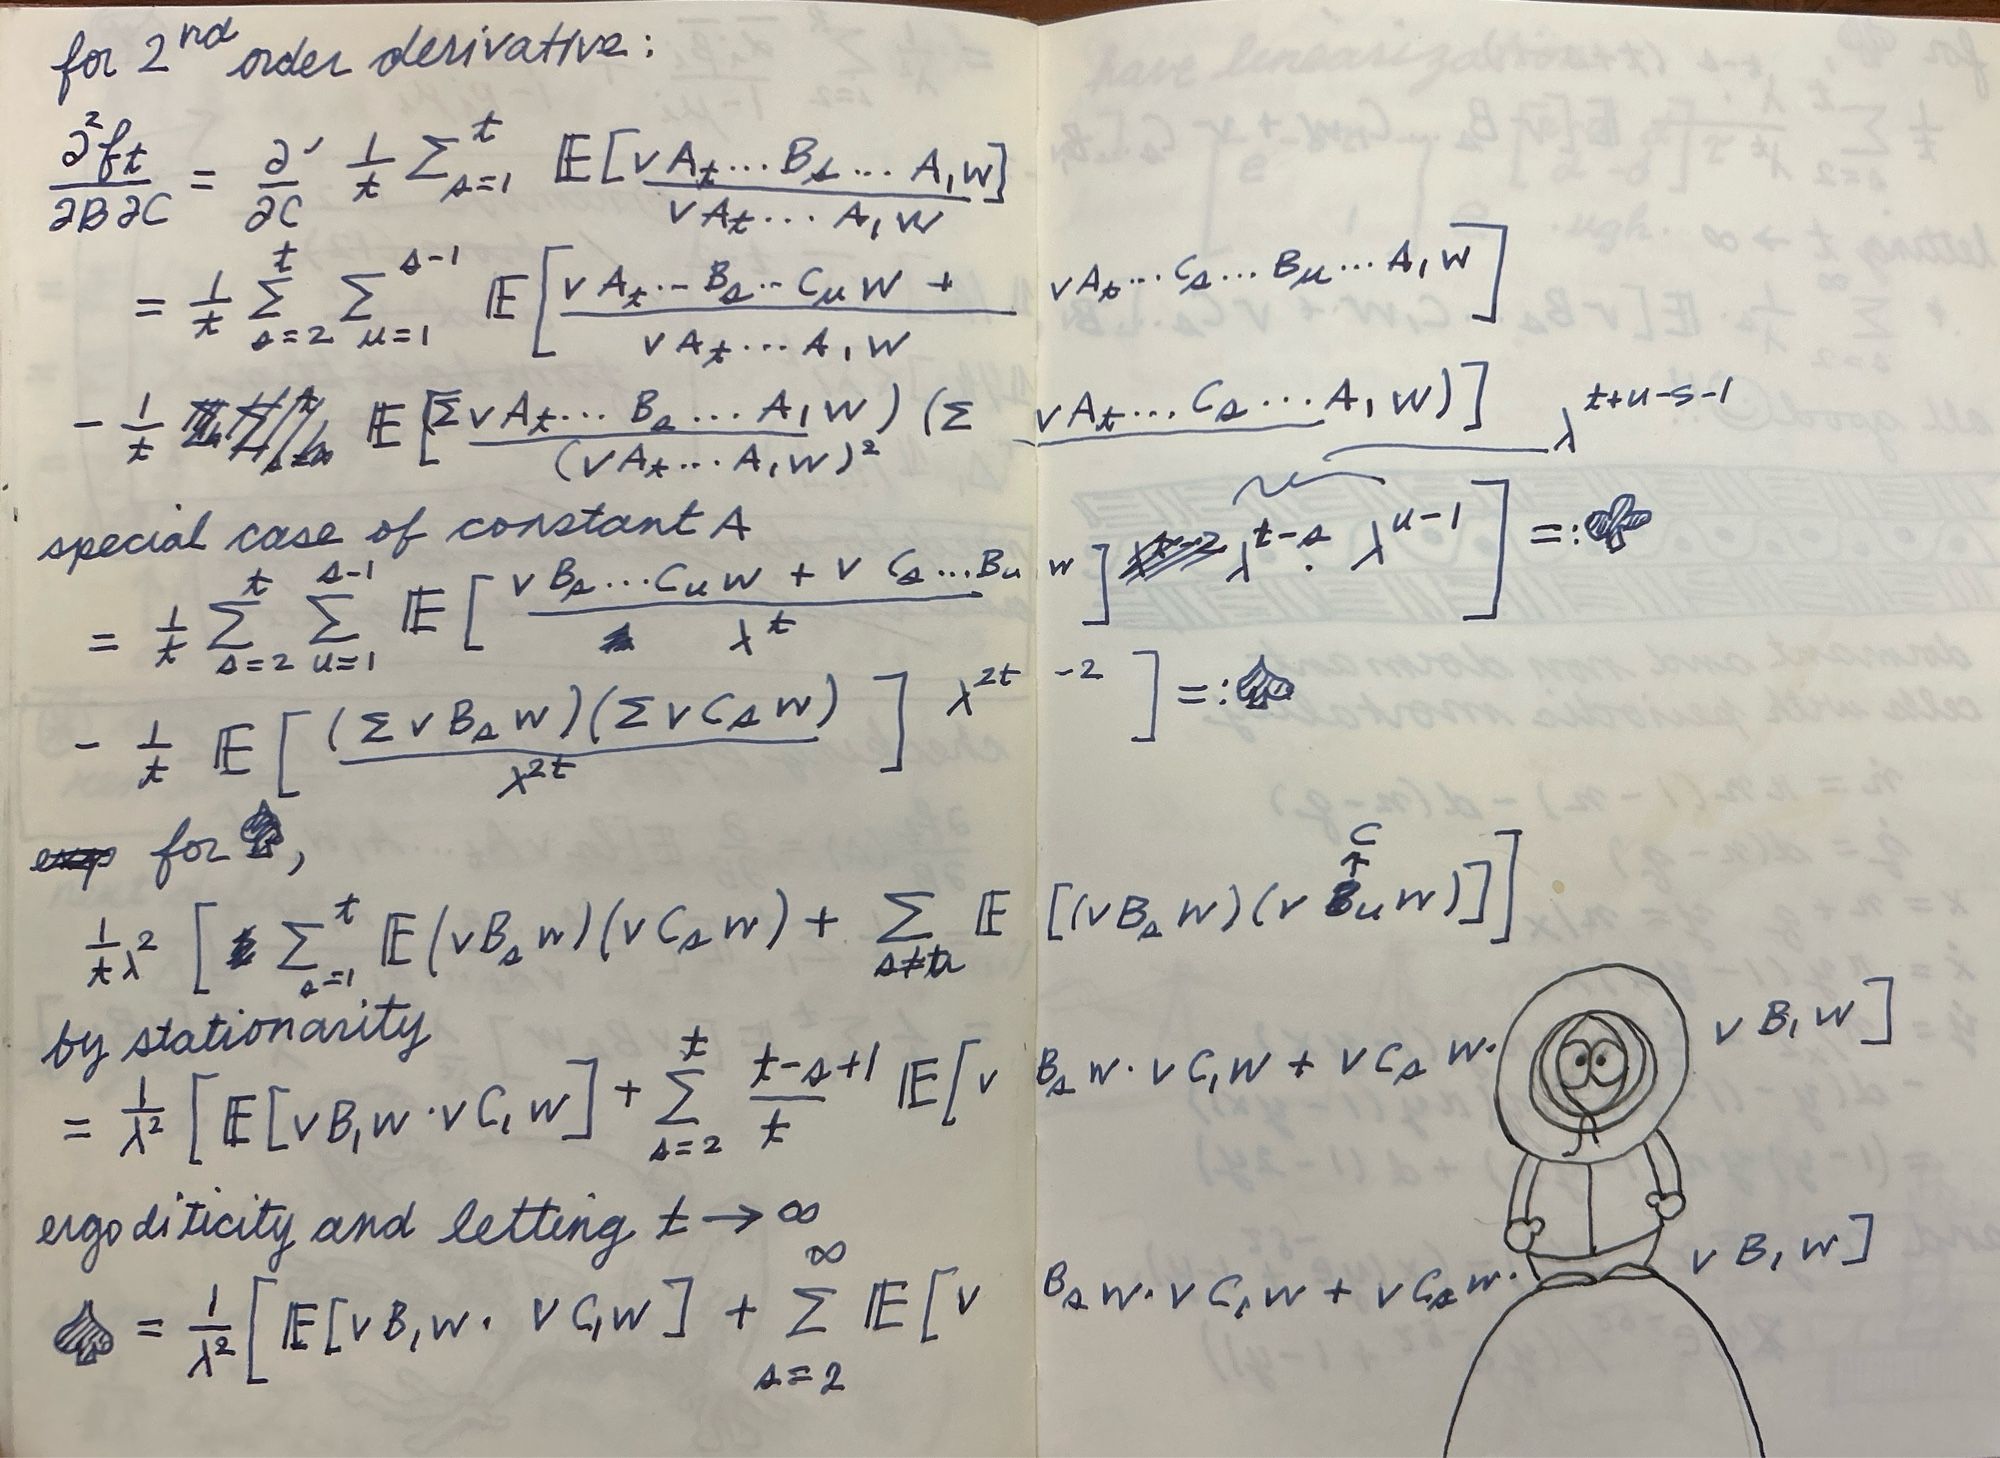 for 2nd order derivative:
∂²ft/∂B∂C = ∂/∂C 1/t Σ_{s=1}^t 𝔼[vA_t...B_s...A_1w / vA_t...A_1w]
= 1/t Σ_{s=2}^t Σ_{u=1}^{s-1} 𝔼[vA_t...B_s...C_uw + vA_t...C_s...B_u...A_1w / vA_t...A_1w]
- 1/t 𝔼[(Σ vA_t...B_s...A_1w)(Σ vA_t...C_s...A_1w) / (vA_t...A_1w)²]
λ^{t+u-s-1}
special case of constant A
= 1/t Σ_{s=2}^t Σ_{u=1}^{s-1} 𝔼[vB_s...C_uw + vC_s...B_uw / λ^t] λ^{t-s} · λ^{u-1}] =: ♣
- 1/t 𝔼[(Σ vB_sw)(Σ vC_sw) / λ^{2t}] λ^{2t-2}] =: ♠
for ♠,
1/tλ² [Σ_{s=1}^t 𝔼(vB_sw)(vC_sw) + Σ_{s≠u} 𝔼[(vB_sw)(vB_uw)]]
C
by stationarity
= 1/λ² [𝔼[vB_1w·vC_1w] + Σ_{s=2}^t t-s+1/t 𝔼[vB_sw·vC_1w + vC_sw·vB_1w]
ergoditicity and letting t → ∞
♠ = 1/λ² [𝔼[vB_1w·vC_1w] + Σ_{s=2}^∞ 𝔼[vB_sw·vC_1w + vC_sw·vB_1w]